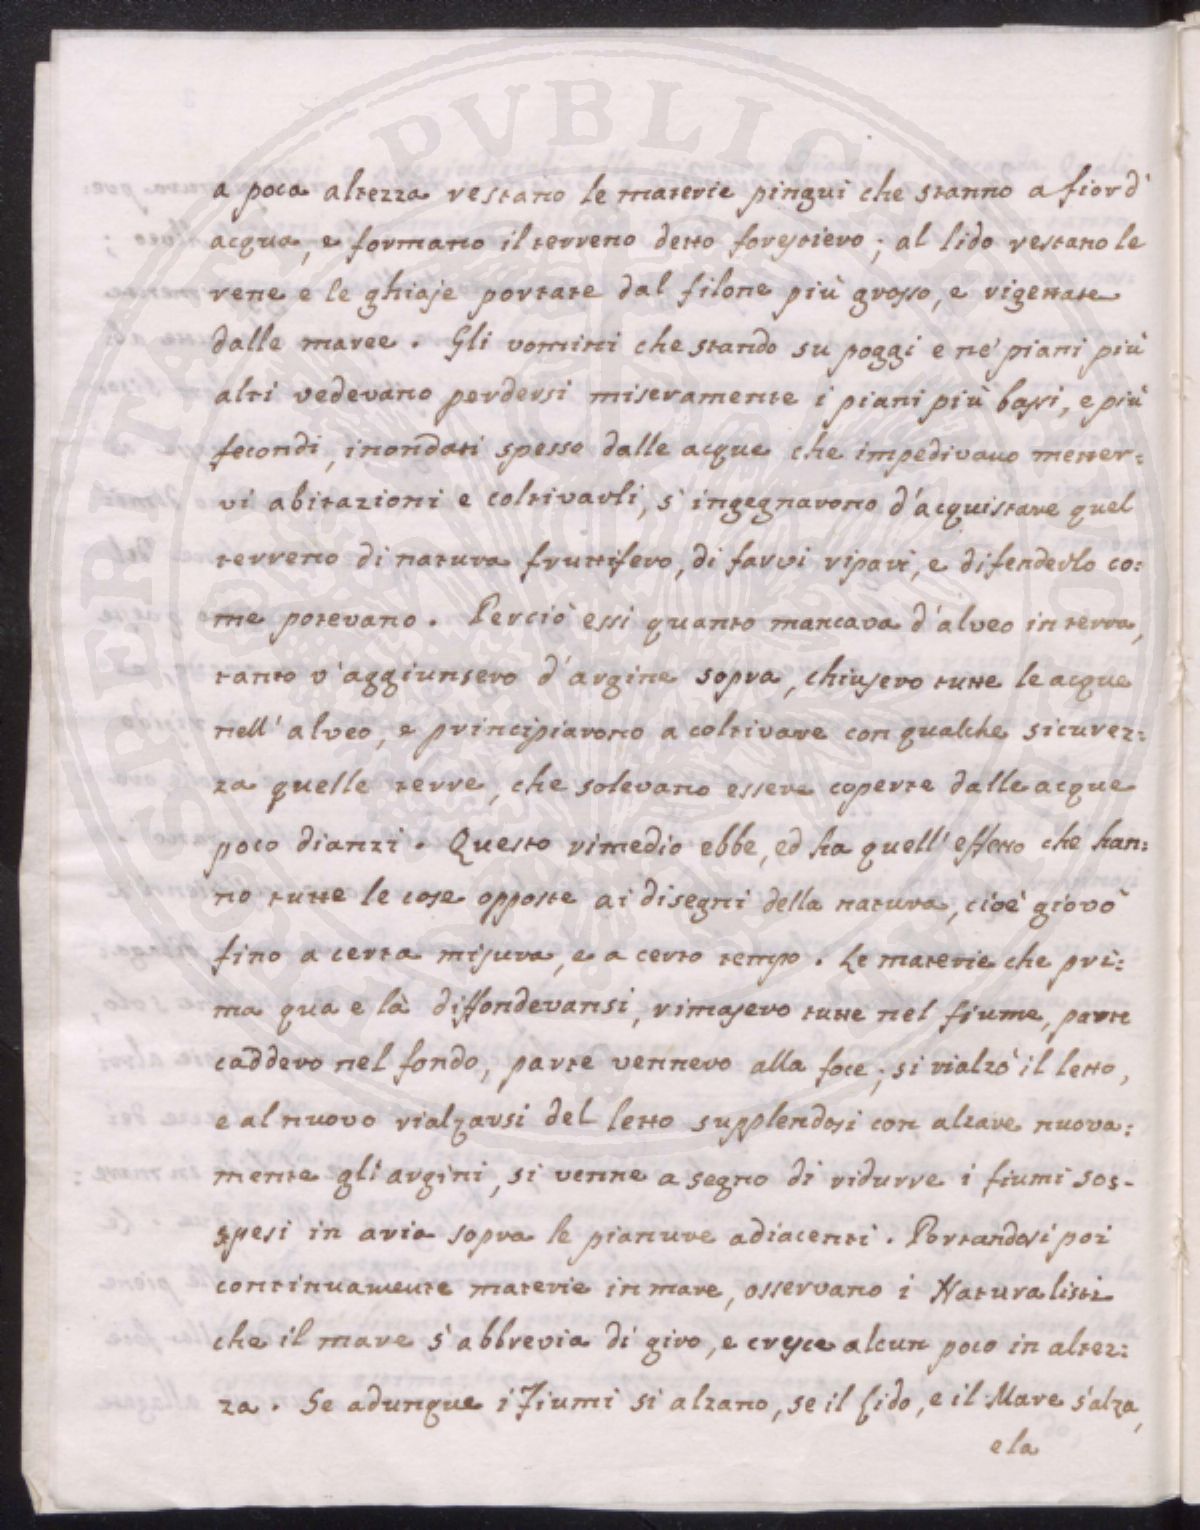 a poca altezza restano le materie pingui che stanno a fior d'
acqua, e formano il terreno detto forestiero; al lido restano le
rene e le ghiaje portate dal filone più grosso, e rigettate
dalle maree. Gli uomini che stando su poggi e ne' piani più
alti vedevano perdersi miseramente i piani più bassi, e più
fecondi, inondati spesso dalle acque che impedivano metter=
vi abitazioni e coltivarli, s'ingegnarono d'acquistare quel
terreno di natura fruttifero, di farvi ripari, e difenderlo co=
me potevano. Perciò essi quanto mancava d'alveo in terra,
tanto v'aggiunsero d'argine sopra, chiusero tutte le acque
nell'alveo, e principiarono a coltivare con qualche sicurez=
za quelle terre, che solevano essere coperte dalle acque
poco dianzi. Questo rimedio ebbe, ed ha quell'effetto che han=
no tutte le cose opposte ai disegni della natura, cioè giovò
fino a certa misura, e a certo tempo. Le materie che pri=
ma qua e là diffondevansi, rimasero tutte nel fiume, parte
caddero nel fondo, parte vennero alla foce; si rialzò il letto,
e al nuovo rialzarsi del letto supplendosi con alzare nuova=
mente gli argini, si venne a segno di ridurre i fiumi sos-
spesi in aria sopra le pianure adiacenti. Portandosi poi
continuamente materie in mare, osservano i Naturalisti
che il mare s'abbrevia di giro, e cresce alcun poco in altez=
za. Se adunque i Fiumi si alzano, se il Lido, e il Mare s'alza,
e la